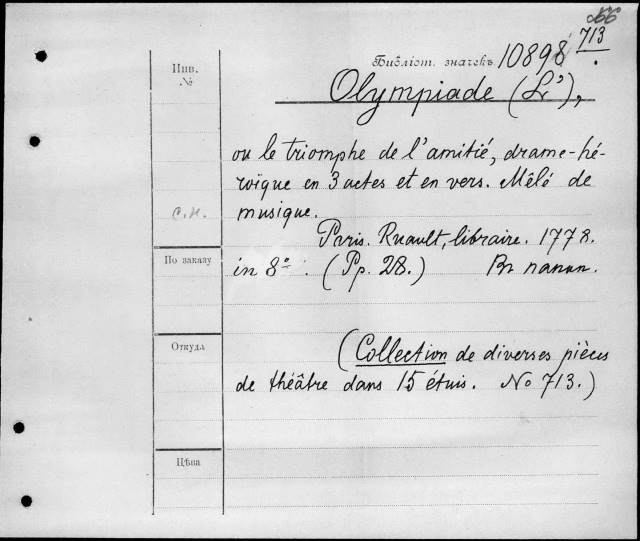 Библіот. значекъ 10898 713
Olympiade (L'),
ou le triomphe de l'amitié, drame-hé-
roïque en 3 actes et en vers. Mêlé de
musique.
Paris. Ruault, libraire. 1778.
in 8º. (Pp. 28.) Въ папкѣ.
(Collection de diverses pièces
de théâtre dans 15 étuis. No 713.)
Инв.
№
С.К.
По заказу
Откуда
Цѣна